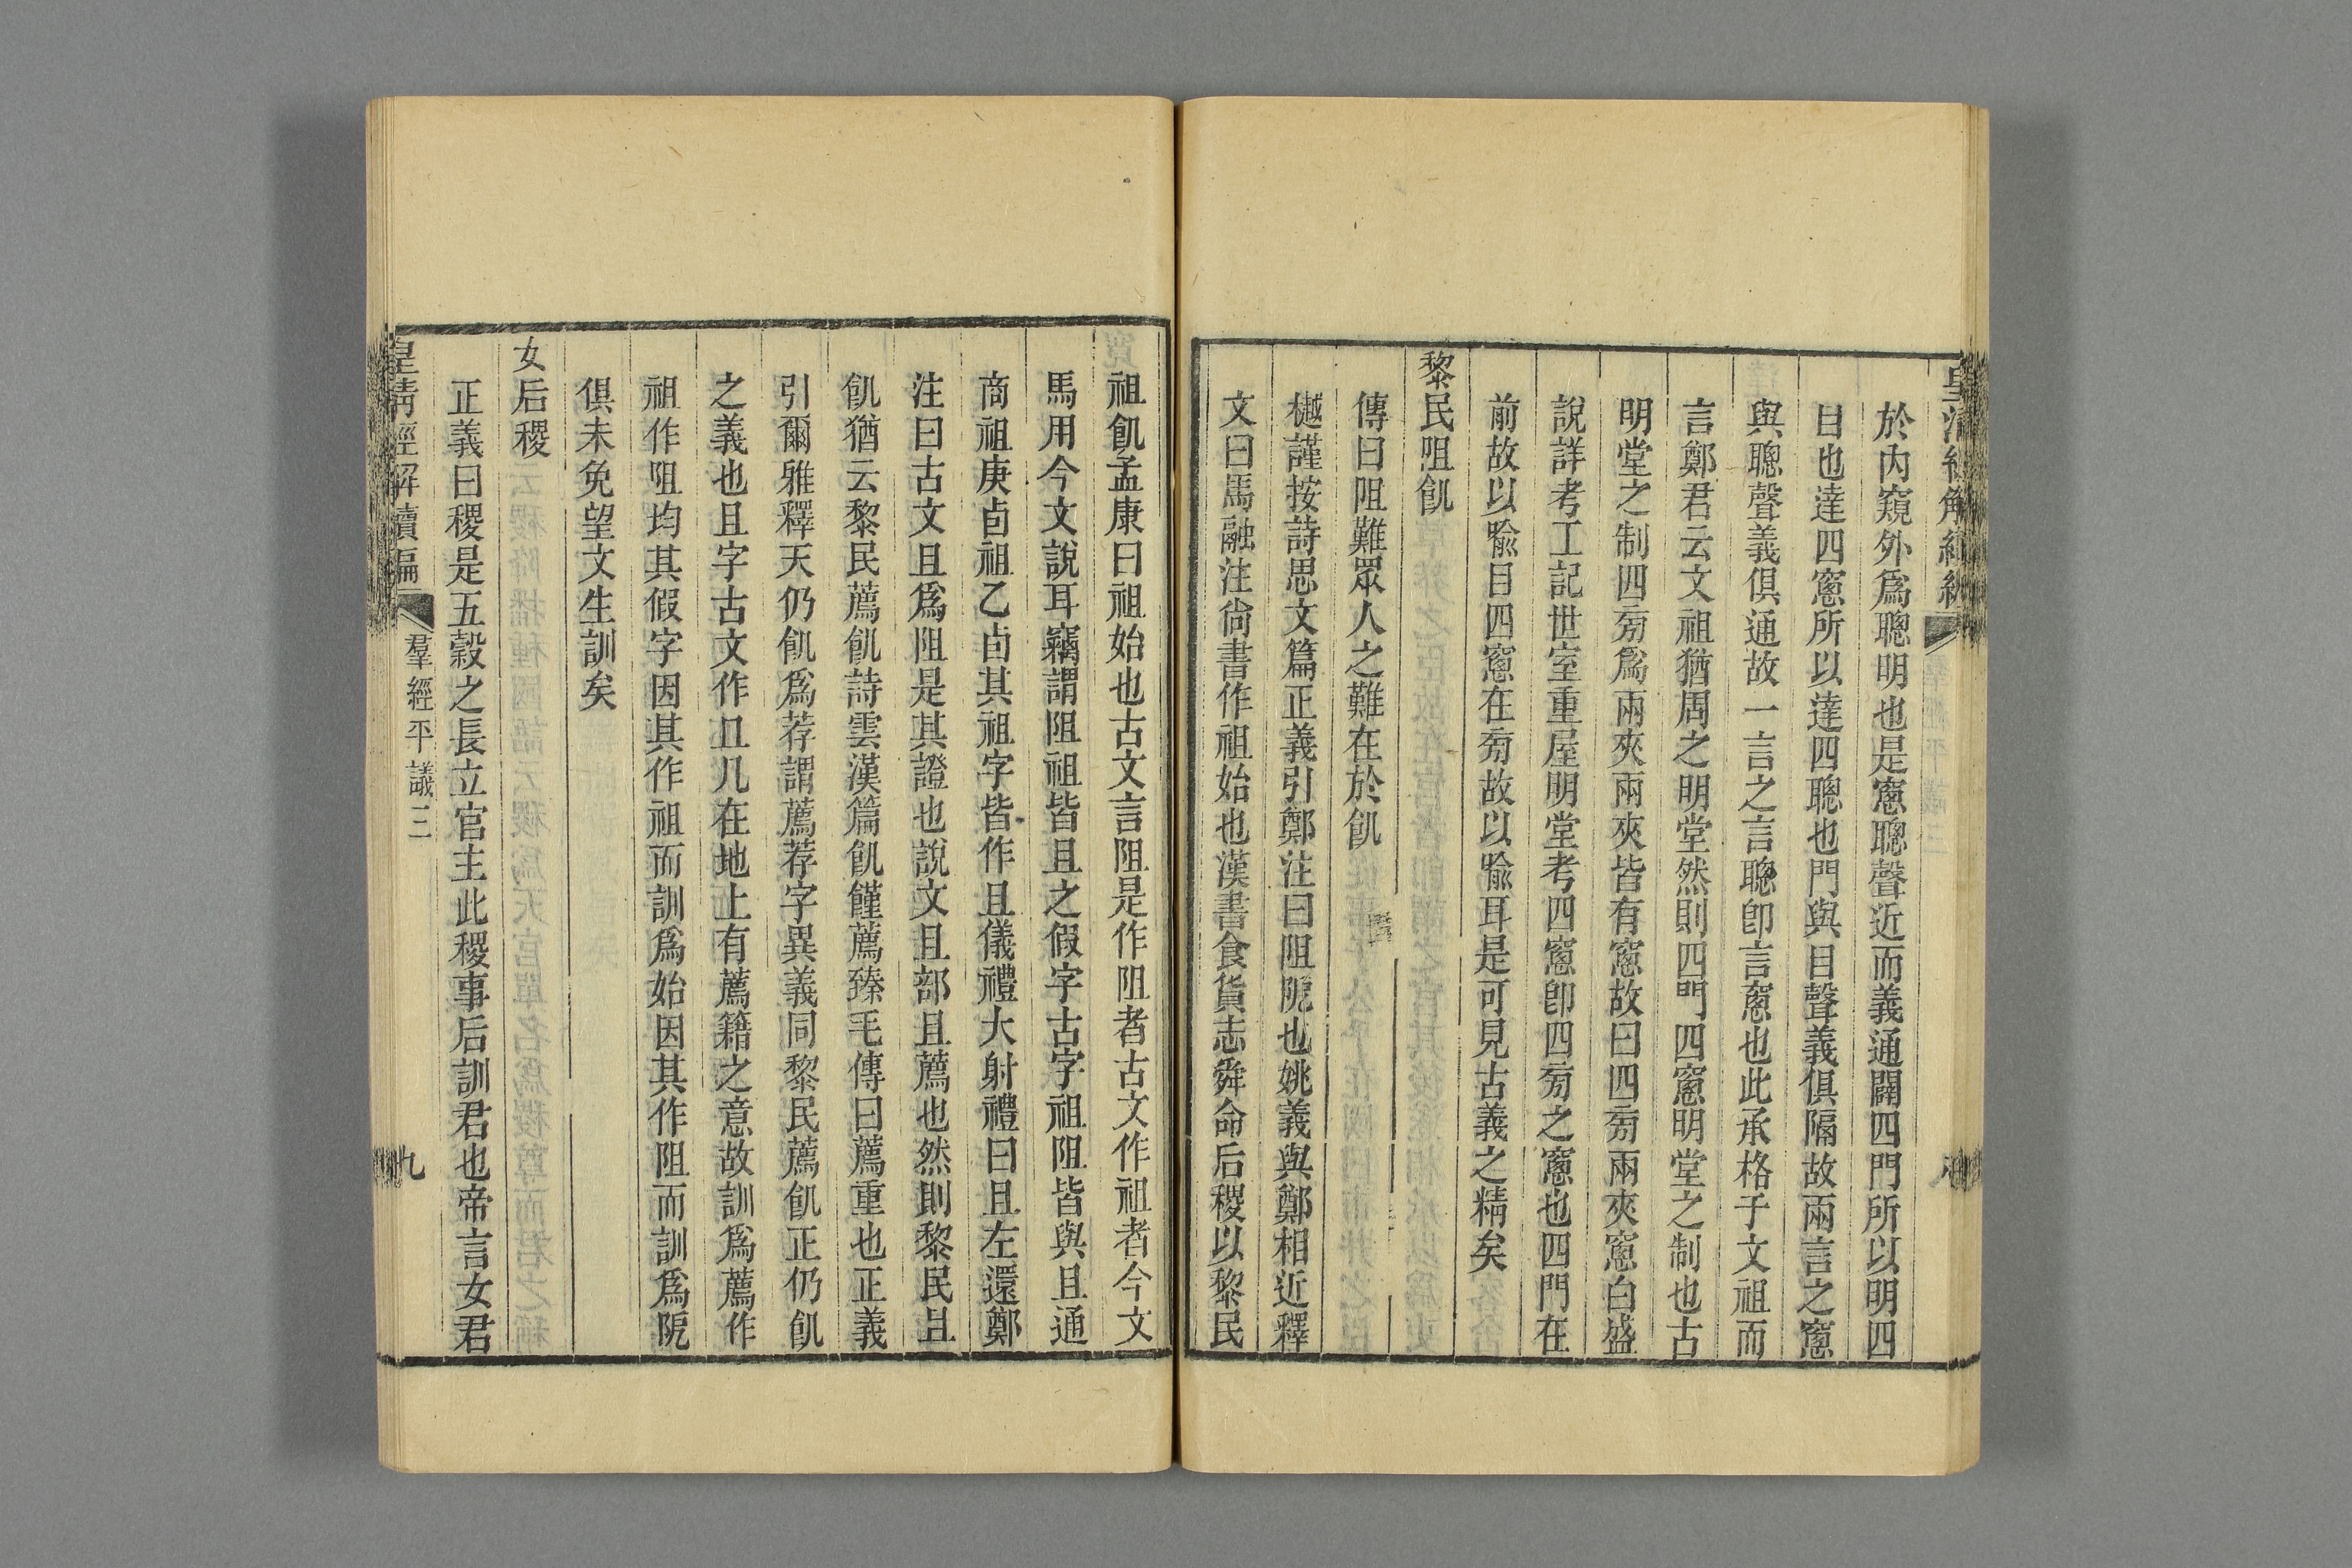 於內窺外爲聰明也是窻聰聲近而義通闢四門所以明四
目也達四窻所以達四聰也門與目聲義俱隔故兩言之窻
與聰聲義俱通故一言之言聰卽言窻也此承格于文祖而
言鄭君云文祖猶周之明堂然則四門四窻明堂之制也古
明堂之制四旁爲兩夾兩夾皆有窻故曰四旁兩夾窻白盛
說詳考工記世室重屋明堂考四窻卽四旁之窻也四門在
前故以喩目四窻在旁故以喩耳是可見古義之精矣
黎民阻飢
傳曰阻難眾人之難在於飢
樾謹按詩思文篇正義引鄭注曰阻阸也姚義與鄭相近釋
文曰馬融注尙書作祖始也漢書食貨志舜命后稷以黎民
祖飢孟康曰祖始也古文言阻是作阻者古文作祖者今文
馬用今文說耳竊謂阻祖皆且之假字古字祖阻皆與且通
商祖庚卣祖乙卣其祖字皆作且儀禮大射禮曰且左還鄭
注曰古文且爲阻是其證也說文且部且薦也然則黎民且
飢猶云黎民薦飢詩雲漢篇飢饉薦臻毛傳曰薦重也正義
引爾雅釋天仍飢爲荐謂薦荐字異義同黎民薦飢正仍飢
之義也且字古文作且几在地上有薦籍之意故訓爲薦作
祖作阻均其假字因其作祖而訓爲始因其作阻而訓爲阸
俱未免望文生訓矣
女后稷
正義曰稷是五穀之長立官主此稷事后訓君也帝言女君
皇淸經解續編
羣經平議三
九